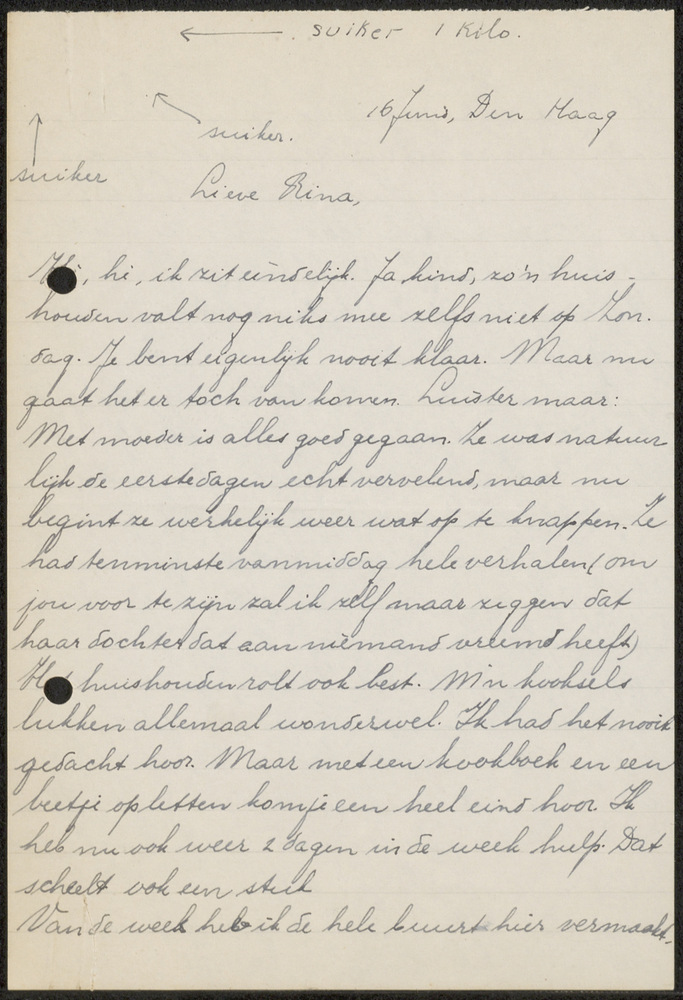 suiker 1 Kilo.
16 Juni, Den Haag
suiker.
suiker
Lieve Rina,
Hi, hi, ik zit eindelijk. Ja kind, zo'n huis-
houden valt nog niks mee zelfs niet op Zon.
dag. Je bent eigenlijk nooit klaar. Maar nu
gaat het er toch van komen. Luister maar:
Met moeder is alles goed gegaan. Ze was natuur
lijk de eerste dagen echt vervelend, maar nu
begint ze werkelijk weer wat op te knappen. Ze
had tenminste vanmiddag hele verhalen (om
jou voor te zijn zal ik zelf maar zeggen dat
haar dochter dat aan niemand vreemd heeft)
Het huishouden rolt ook best. M'n kooksels
lukken allemaal wonderwel. Ik had het nooit
gedacht hoor. Maar met een kookboek en een
beetje opletten kom je een heel eind hoor. Ik
heb nu ook weer 2 dagen in de week hulp. Dat
scheelt ook een stuk
Van de week heb ik de hele buurt hier vermaakt.